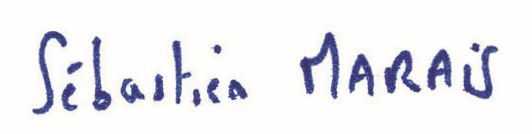 Sébastien MARAIS